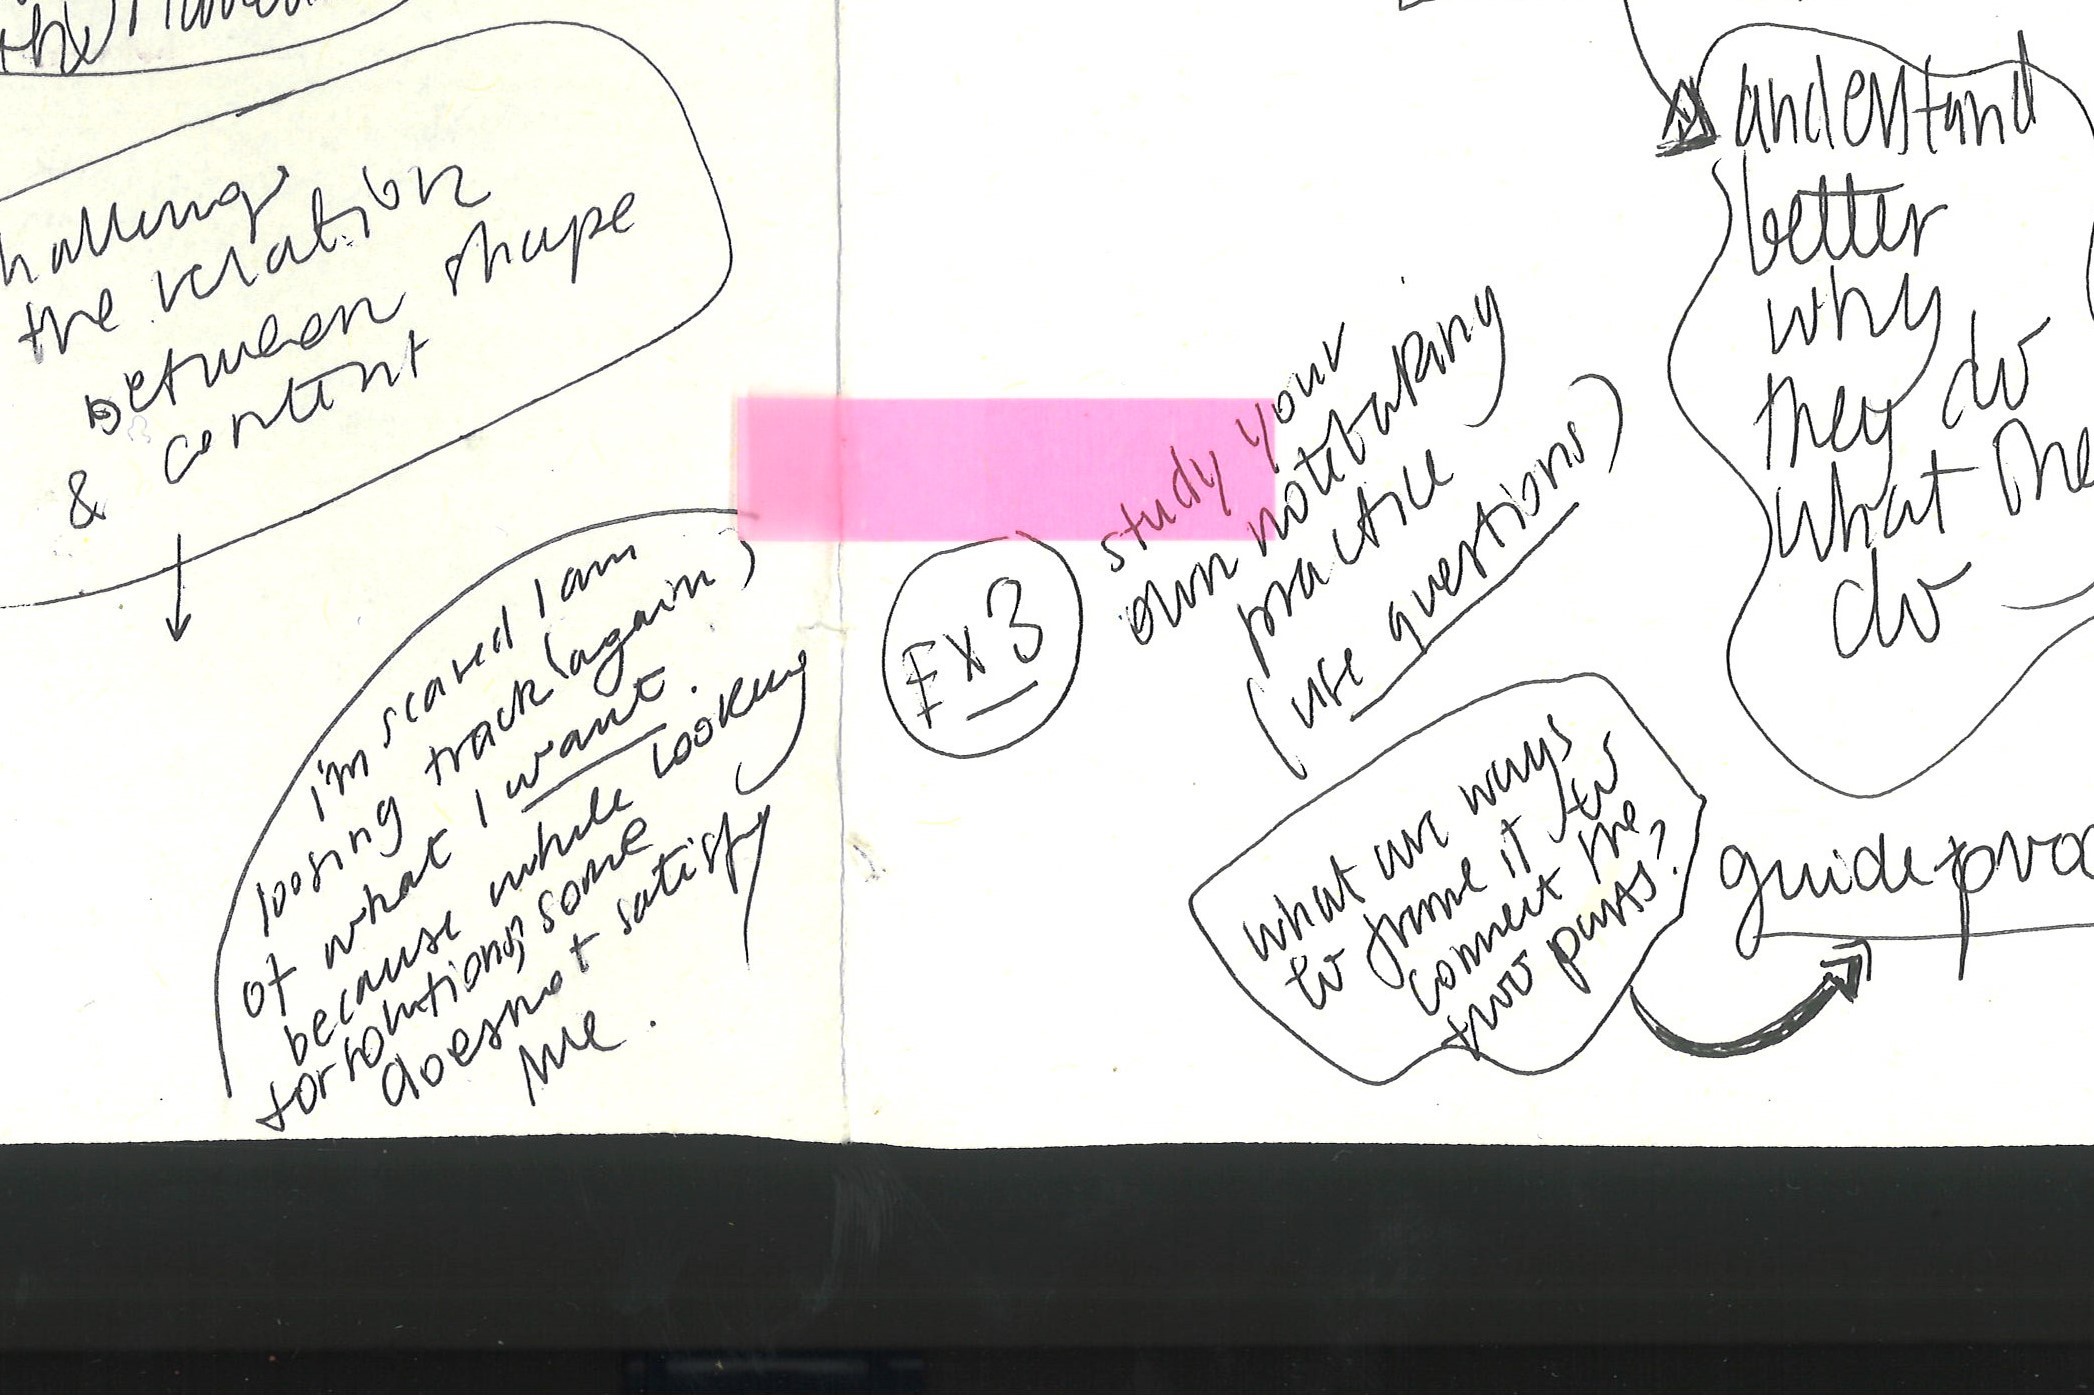 the
hallenge
the relation
between shape
& content
i'm scared I am
loosing track (again)
of what I want.
because while looking
for solutions, some
does not satisfy
me.
EX3
study your
own notetaking
practice
(use questions)
what are ways
to frame it to
connect the
two parts?
understand
better
why
they do
what the
do
guide